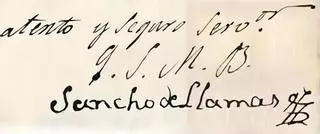 atento y seguro Serv.or
Q. S. M. B.
Sancho de Llamas